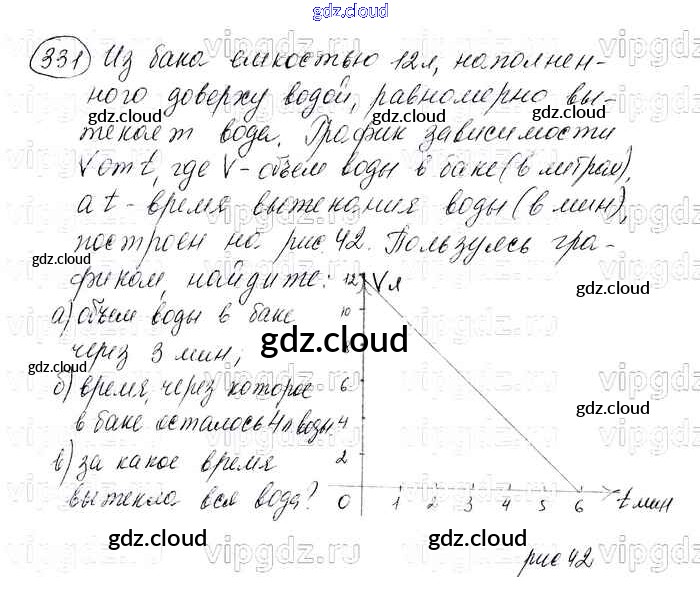 gdz.cloud
331 Из бака емкостью 12л, наполнен-
ного доверху водой, равномерно вы-
текает вода. График зависимости
V от t, где V - объем воды в баке (в литрах),
а t - время вытекания воды (в мин),
построен на рис. 42. Пользуясь гра-
фиком, найдите:
а) объем воды в баке
через 3 мин;
б) время, через которое
в баке осталось 4 л воды.
в) за какое время
вытекла вся вода?
12 V л
10
8
6
4
2
0 1 2 3 4 5 6 t мин
рис 42
gdz.cloud
gdz.cloud
gdz.cloud
gdz.cloud
gdz.cloud
gdz.cloud
gdz.cloud
gdz.cloud
gdz.cloud
gdz.cloud
gdz.cloud
vipgdz.ru